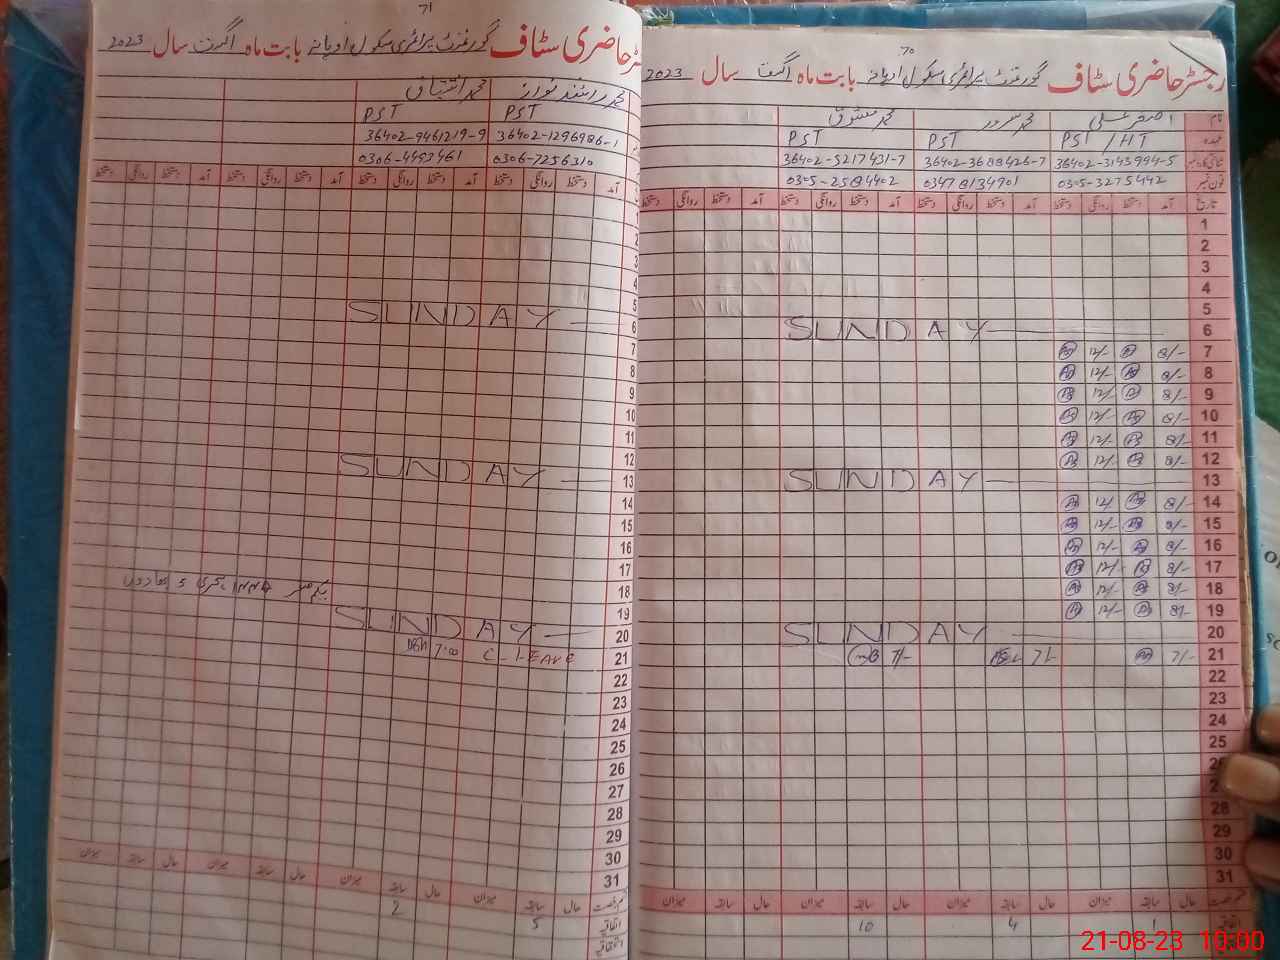 70
رجسٹر حاضری سٹاف گورنمنٹ پرائمری سکول بابت ماہ اگست سال 2023
نام اصغر علی محمد سرور محمد مشتاق
عہدہ PST / HT PST PST
36402-3143994-5 36402-3688426-7 36402-5217431-7
فون نمبر 0305-3275442 03478134901 0305-2584402
تاریخ آمد دستخط روانگی دستخط آمد دستخط روانگی دستخط آمد دستخط روانگی دستخط آمد دستخط روانگی دستخط
1
2
3
4
5
6 SUNDAY
7 8/- 12/-
8 8/- 12/-
9 8/- 12/-
10 8/- 12/-
11 8/- 12/-
12 8/- 12/-
13 SUNDAY
14 8/- 12/-
15 8/- 12/-
16 8/- 12/-
17 8/- 12/-
18 8/- 12/-
19 8/- 12/-
20 SUNDAY
21 7/- 7/- 7/-
22
23
24
25
26
27
28
29
30
31
قسم رخصت حال سابقہ میزان حال سابقہ میزان حال سابقہ میزان حال سابقہ میزان
اتفاقیہ 1 4 10
71
رجسٹر حاضری سٹاف گورنمنٹ پرائمری سکول بابت ماہ اگست سال 2023
محمد راشد نواز محمد اشتیاق
PST PST
36402-1296986-1 36402-9461219-9
0306-7256310 0306-4493461
آمد دستخط روانگی دستخط آمد دستخط روانگی دستخط آمد دستخط روانگی دستخط آمد دستخط روانگی دستخط
1
2
3
4
5
6 SUNDAY
7
8
9
10
11
12
13 SUNDAY
14
15
16
17
18
19
20 SUNDAY
21 C-LEAVE 7:00
22
23
24
25
26
27
28
29
30
31
قسم رخصت حال سابقہ میزان حال سابقہ میزان حال سابقہ میزان حال سابقہ میزان
اتفاقیہ 5 2
21-08-23 10:00